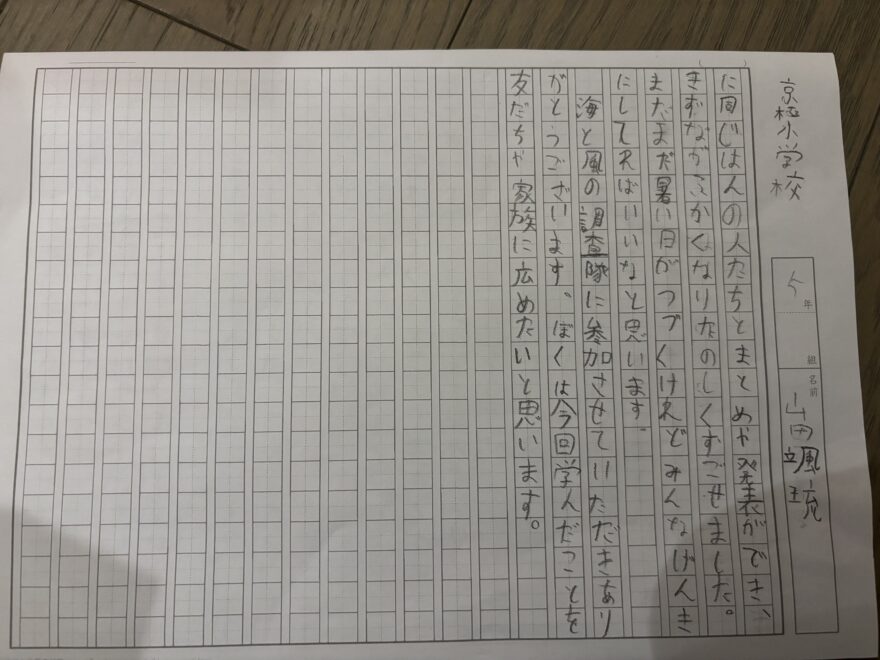 京極小学校
5年 組 名前 山田颯琉
に同じはんの人たちとまとめや発表ができ、
きずながふかくなりたのしくすごせました。
まだまだ暑い日がつづくけれどみんなげんき
にしてればいいなと思います。
海と風の調査隊に参加させていただきあり
がとうございます、ぼくは今回学んだことを
友だちや家族に広めたいと思います。